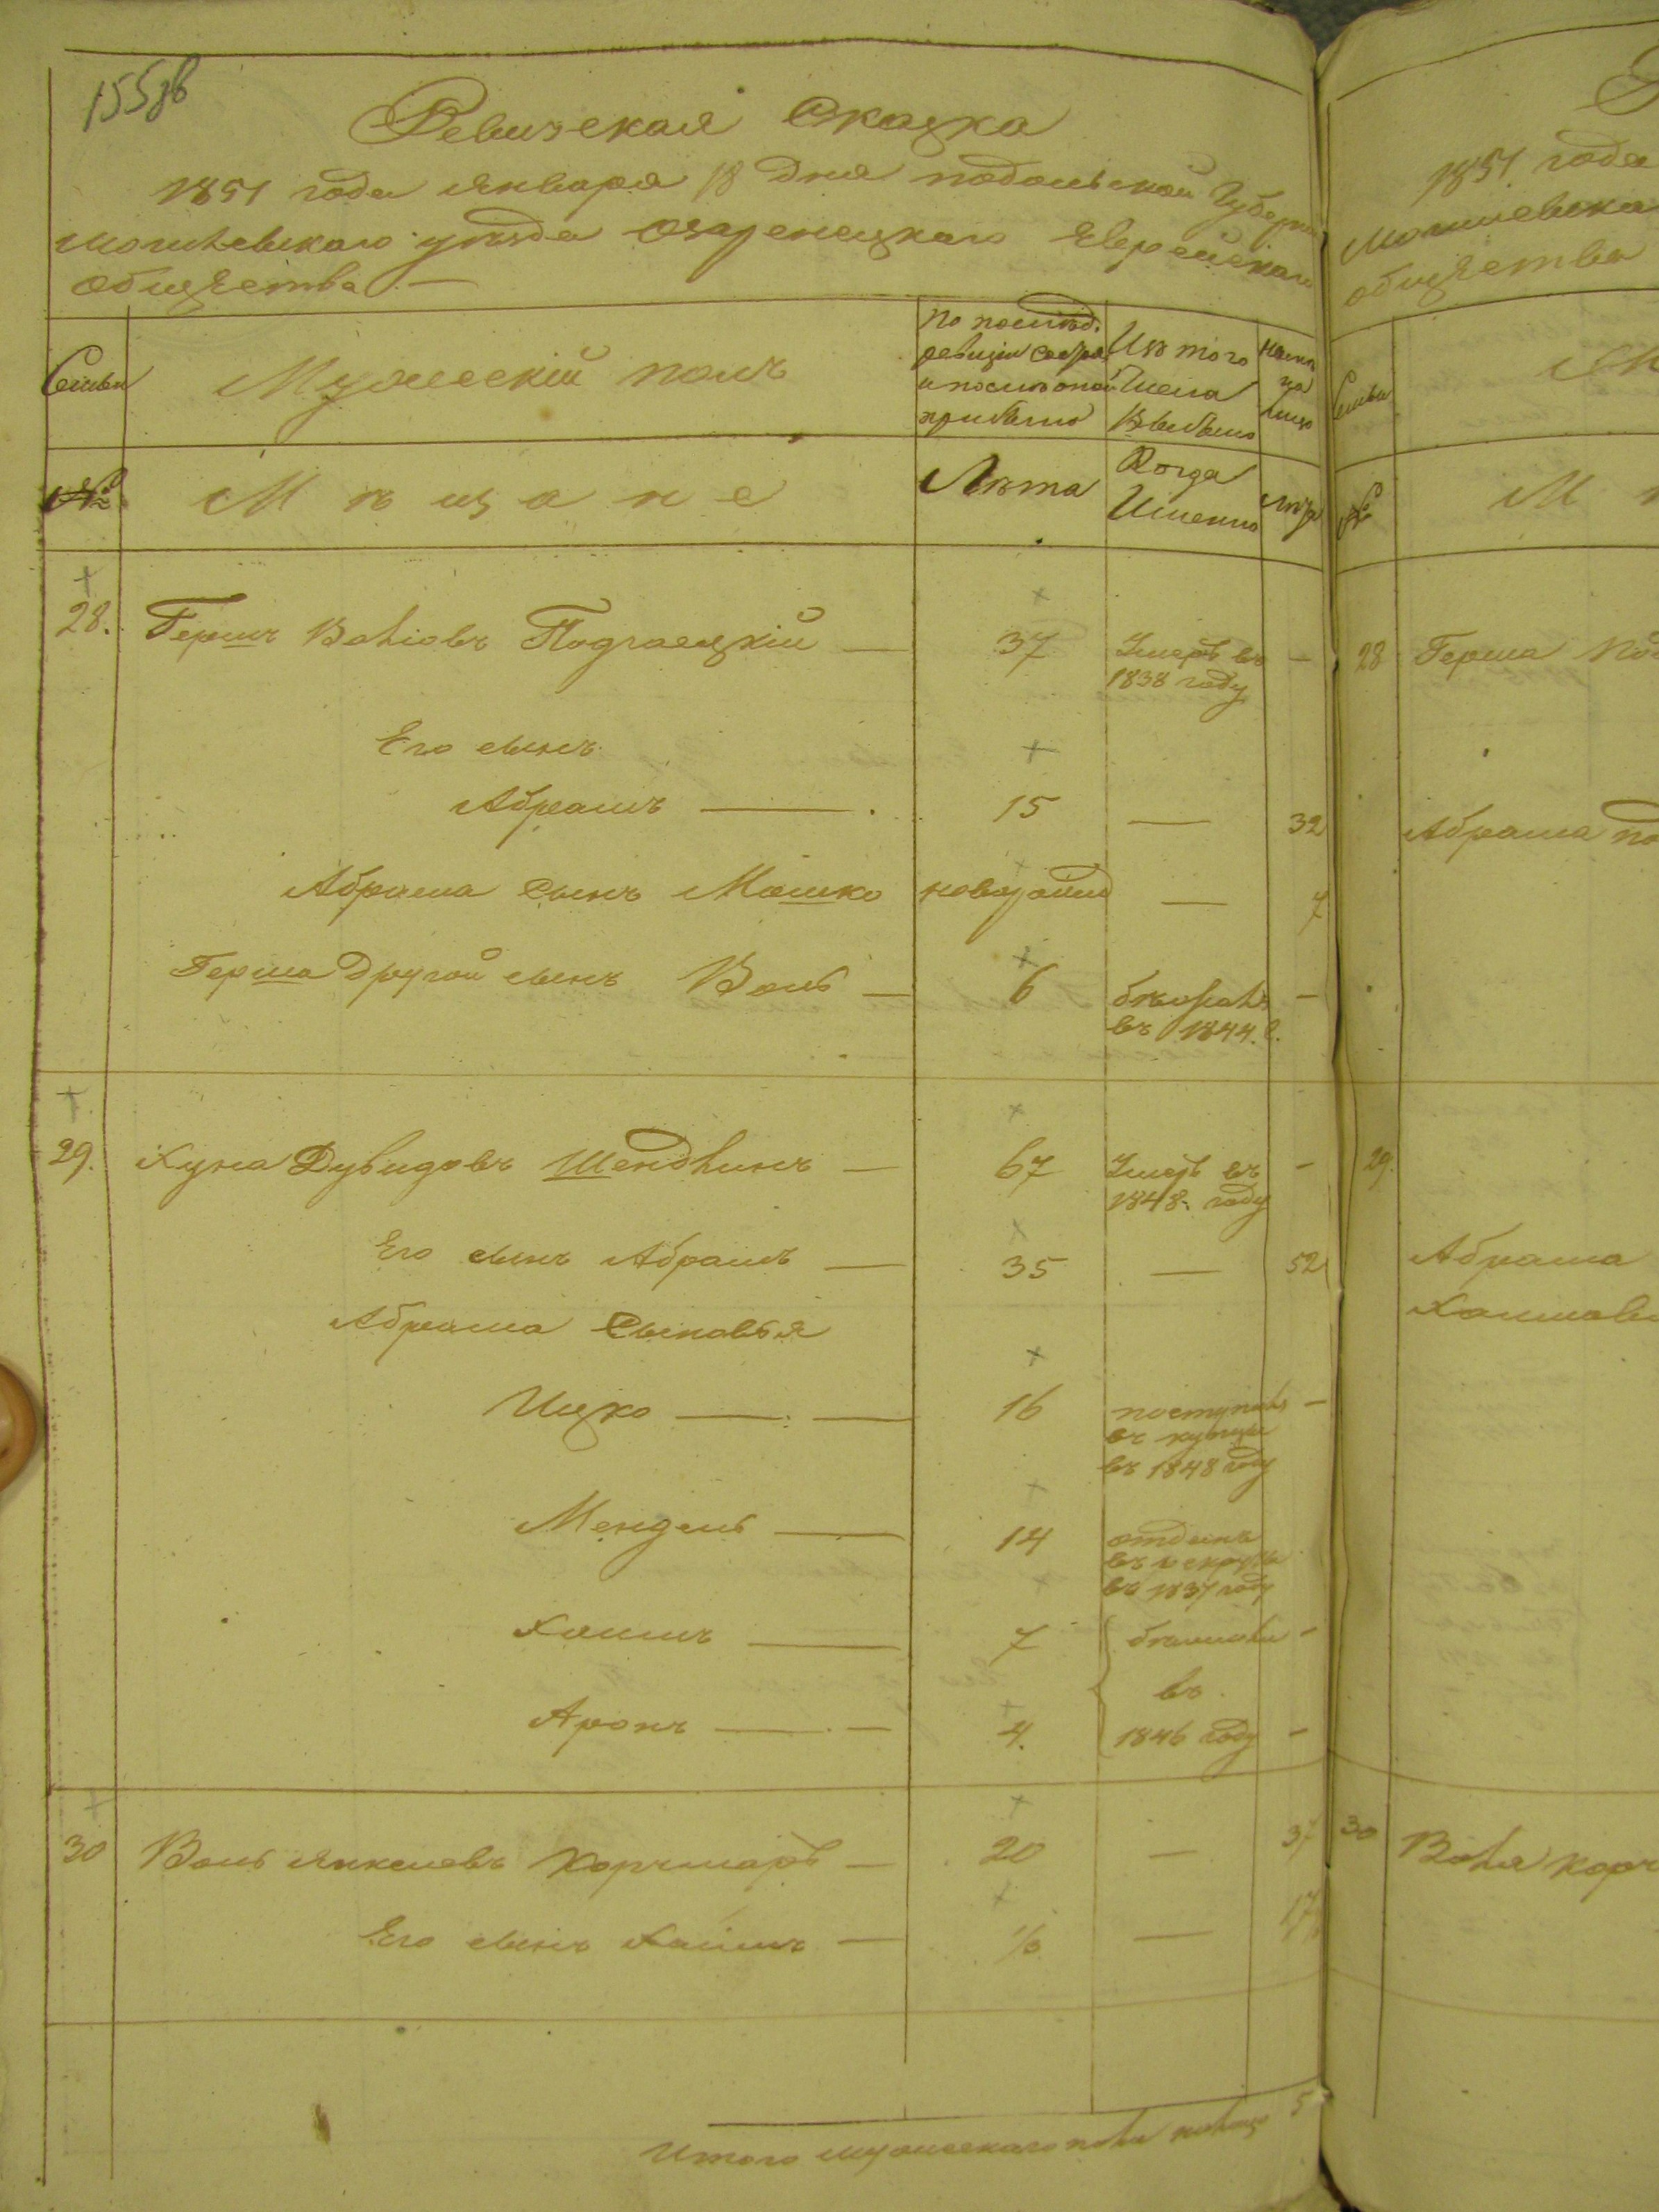 155зв
Ревизская Сказка
1851 года января 18 дня подольской Губерн
могилевского уезда Озаренецкаго Еврейскаго
общества —
Семьи
Мужеский полъ
по послед. ревизии состоя и после оной прибыло
Изъ того числа Выбыло
Ныне на лицо
№
Мещане
Лета
Когда Именно
лета
28. Гершъ Волiовъ Подгаецкiй — 37 Умеръ въ 1838 году —
Его сынъ
Абрамъ — 15 — 32
Абрама сынъ Мошко новорожд — 7
Герша другой сынъ Воль — 6 бежалъ въ 1844. г. —
29. Хуна Дувидовъ Шендлинъ — 67 Умеръ въ 1848. году —
Его сынъ Абрамъ — 35 — 52
Абрама Сыновья
Ицко — 16 поступилъ въ купцы въ 1848 году —
Мендель — 14 отданъ въ рекруты въ 1837 году
Хаимъ — 7 бежали —
въ
Аронъ — 4. 1846 году —
30 Воль Янкелевъ Корчмаръ — 20 — 37
Его сынъ Хаимъ — ½ — 17
Итого мужескаго пола налицо 5
1851 года
могилевска
общества
Семьи
М
№
М
28 Герша Под
Абрама по
29.
Абрама
Хаимова
30 Воля корч